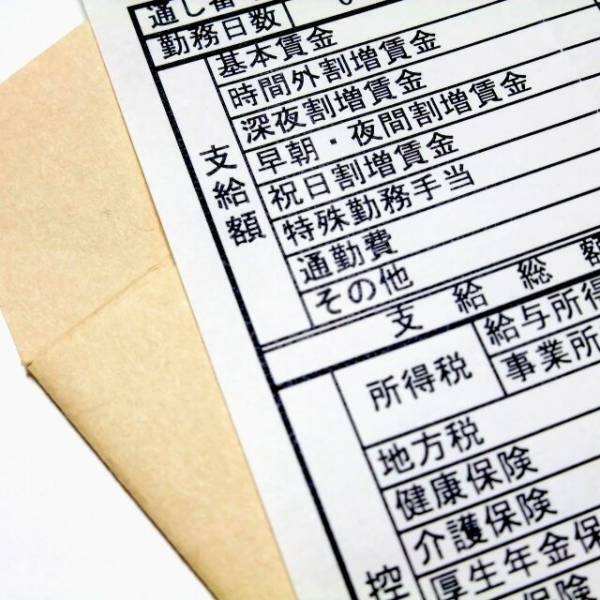 通し番
勤務日数
基本賃金
時間外割増賃金
深夜割増賃金
早朝・夜間割増賃金
祝日割増賃金
特殊勤務手当
通勤費
その他
支給額
支給総額
所得税
給与所得
事業所
地方税
健康保険
介護保険
厚生年金保
保険
控